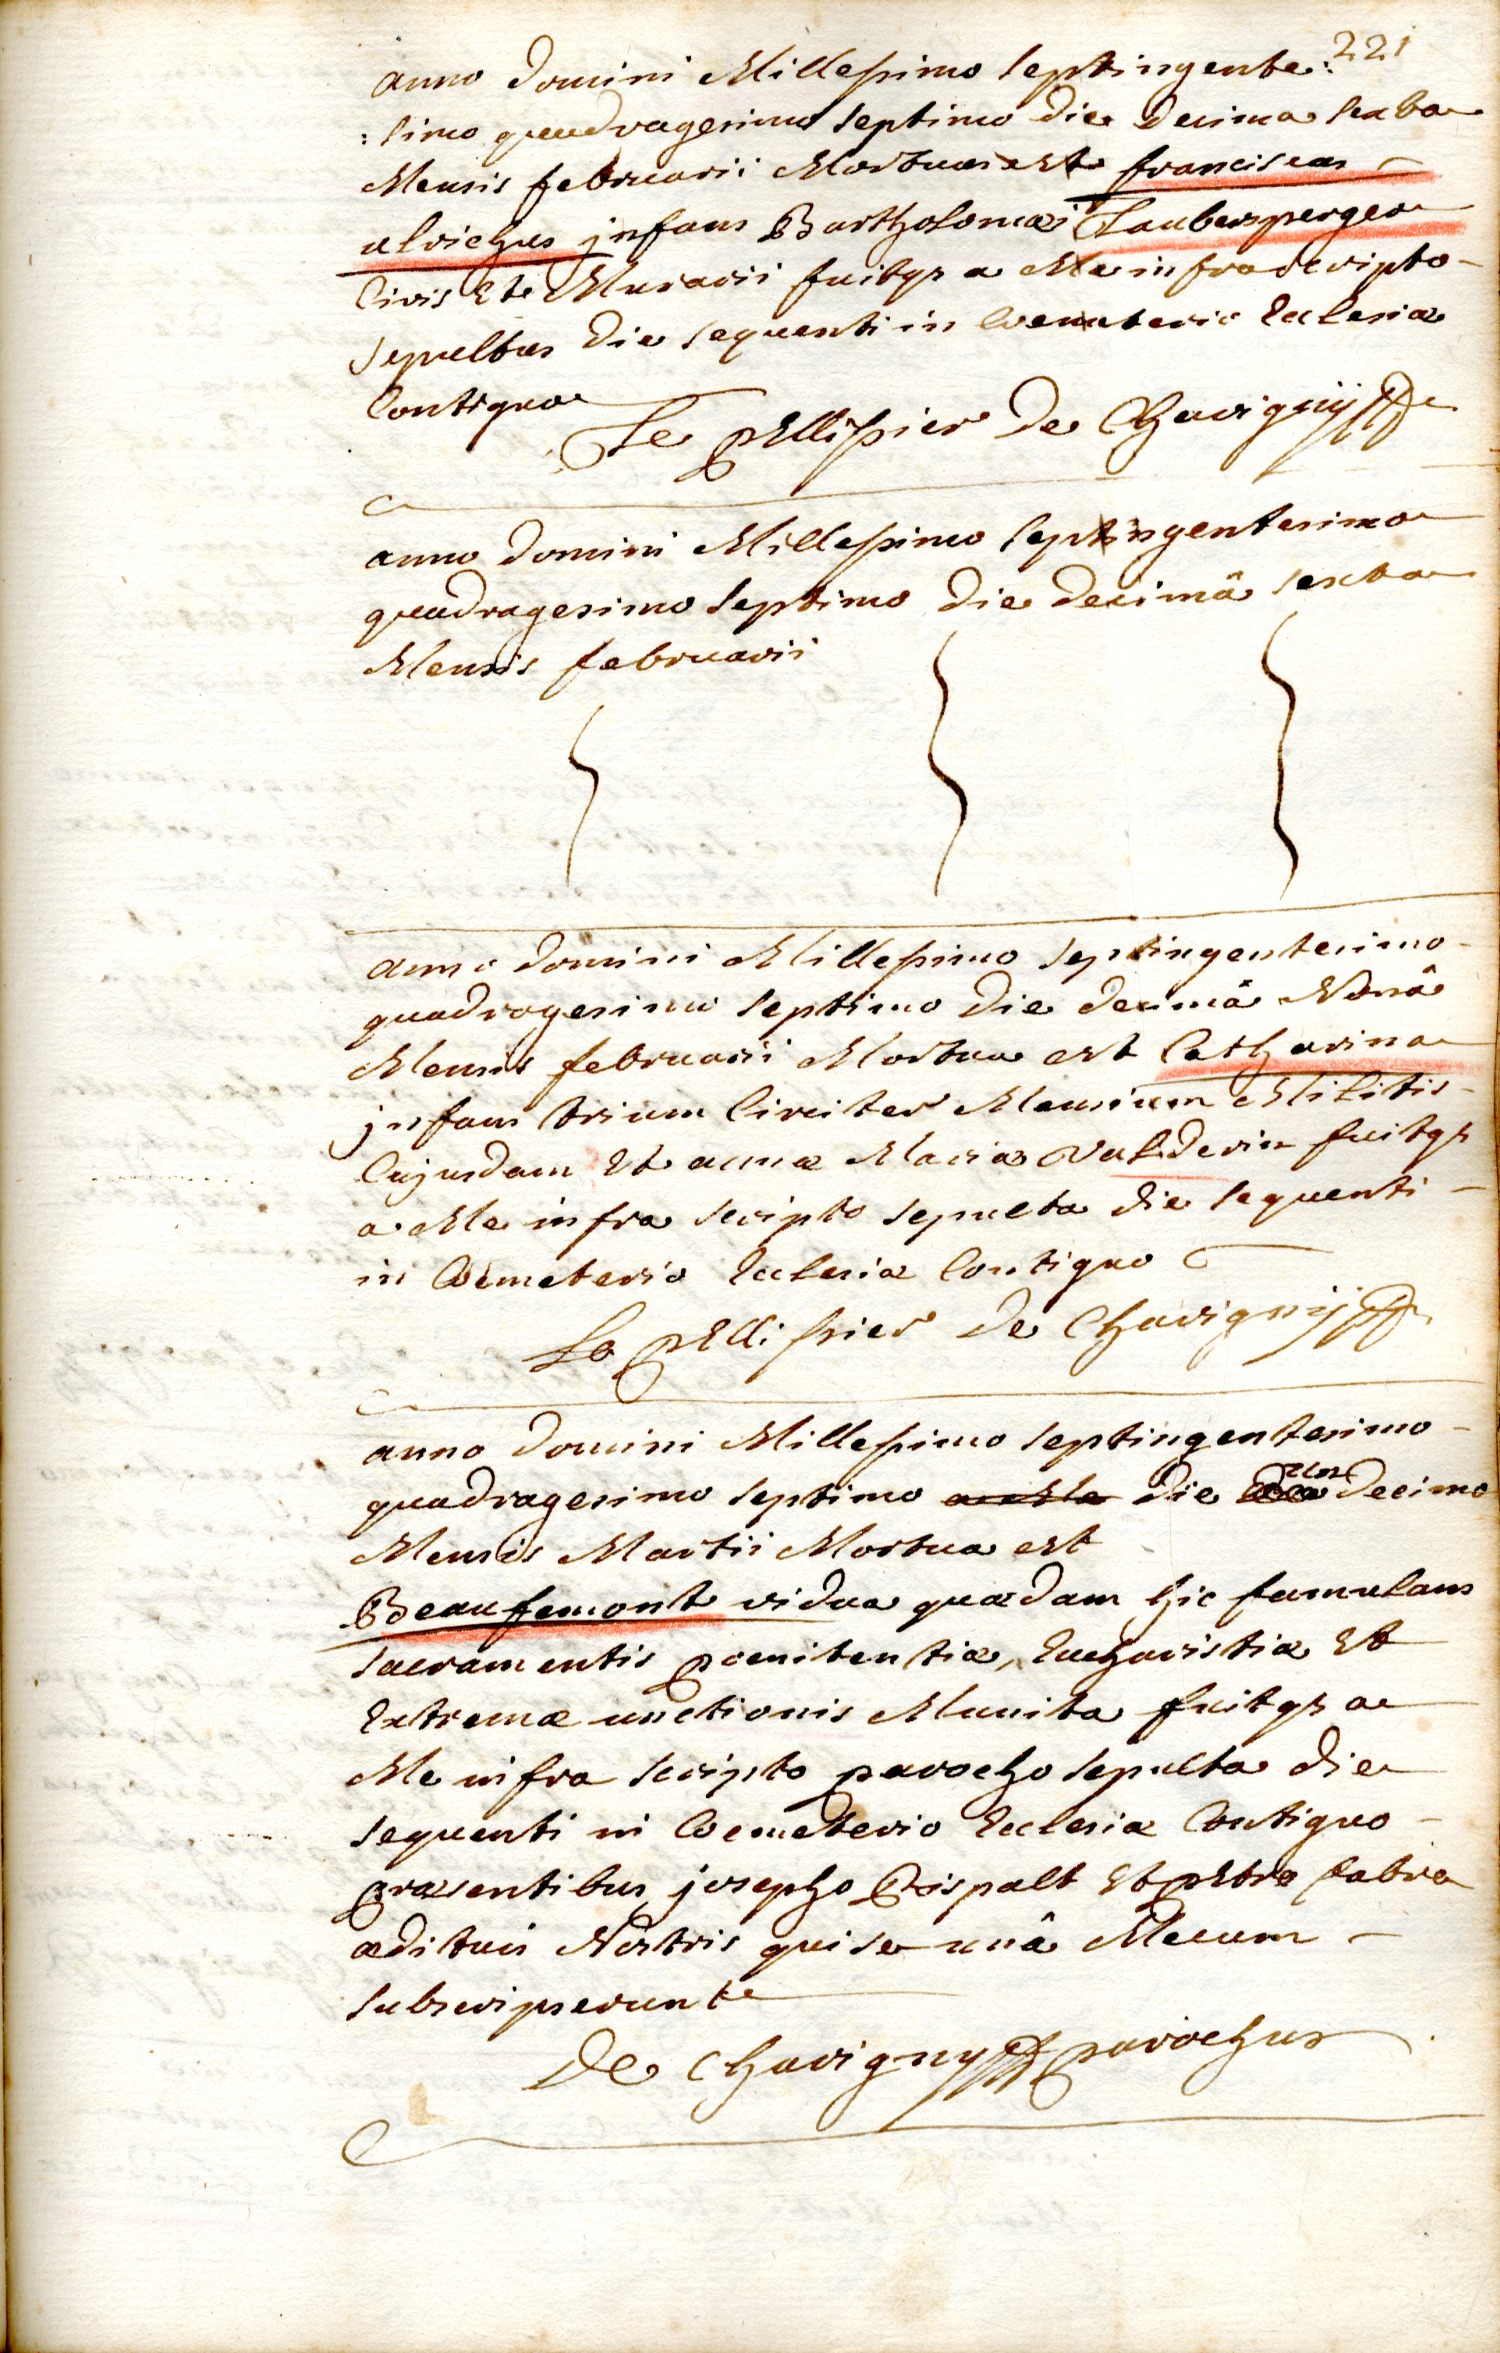 221
anno Domini Millesimo septingente:
:simo quadragesimo septimo die decima sexta
Mensis februarii Mortuus est franciscus
ulrichus jnfans Bartholomæi Laubersperger
Civis Et Murarii fuitqz a Me infra scripto
sepultus die sequenti in Coemeterio Ecclesiæ
Contiguo
Le pEllissier De Chavignÿ
anno Domini Millesimo septingentesimo
quadragesimo septimo die decimâ sexta
Mensis februarii
anno Domini Millesimo septingentesimo
quadragesimo septimo die decimâ Nonâ
Mensis februarii Mortua est Catharina
jnfans trium Circiter Mensium Militis
Cujusdam Et annæ Mariæ Valderin fuitqz
a Me infra scripto sepulta die sequenti
in Coemeterio Ecclesiæ Contiguo
Le pEllissier De Chavignÿ
anno Domini Millesimo septingentesimo
quadragesimo septimo die un decimo
Mensis Martii Mortua est
Beaufemont vidua quædam hic famulans
sacramentis poenitentiæ, Eucharistiæ Et
Extremæ unctionis Munita fuitqz a
Me infra scripto parocho sepulta die
sequenti in Coemeterio Ecclesiæ Contiguo
præsentibus josepho Rispalt Et pEtro fabre
ædituis Nostris qui se unâ Mecum
subscripserunt
De Chavigny parochus